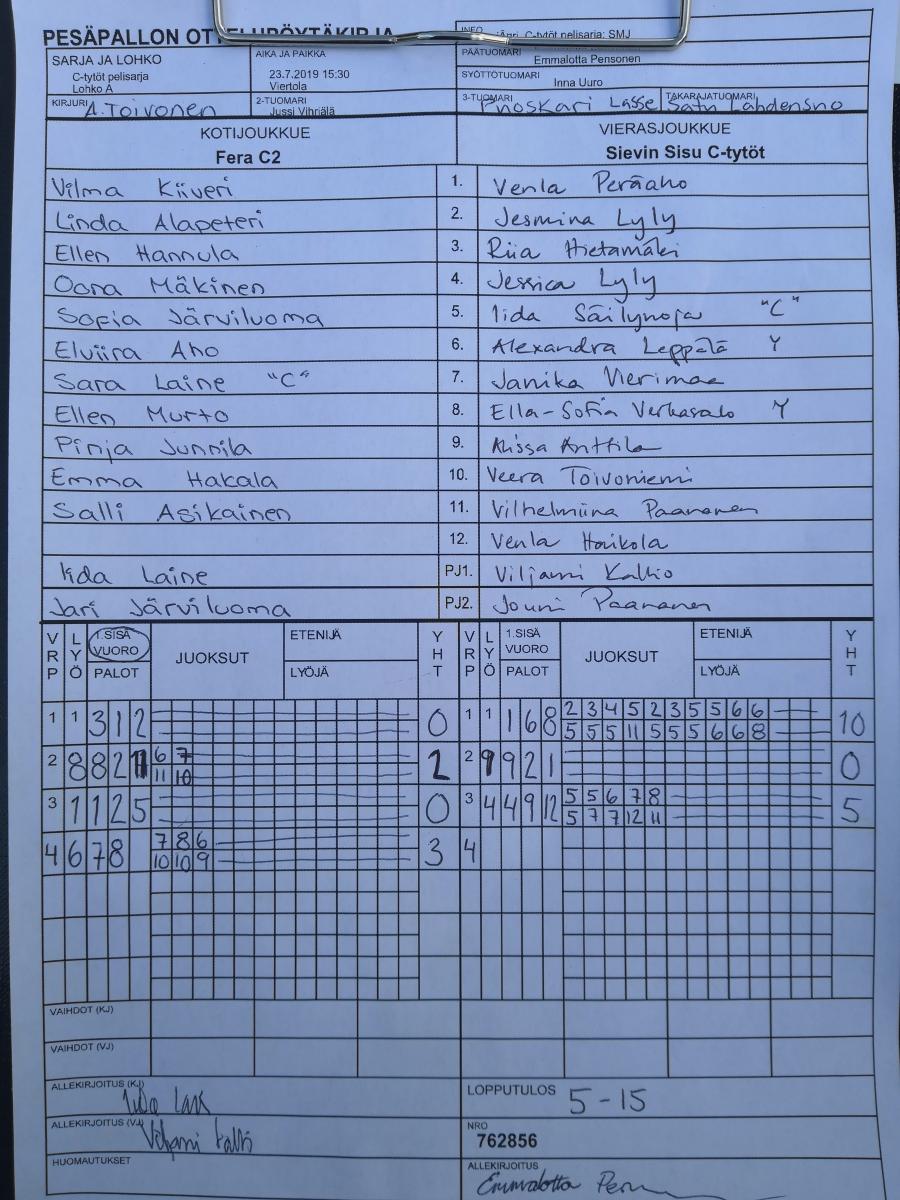 PESÄPALLON OTTELUPÖYTÄKIRJA
INFO C-tytöt pelisarja: SMJ
SARJA JA LOHKO
C-tytöt pelisarja
Lohko A
AIKA JA PAIKKA
23.7.2019 15:30
Viertola
PÄÄTUOMARI
Emmalotta Pensonen
SYÖTTÖTUOMARI
Inna Uuro
KIRJURI A.Toivonen
2-TUOMARI
Jussi Vihriälä
3-TUOMARI Lasse
TAKARAJATUOMARI Satu
KOTIJOUKKUE
Fera C2
VIERASJOUKKUE
Sievin Sisu C-tytöt
Vilma Kiiveri 1. Venla Peräaho
Linda Alapeteri 2. Jesmina Lyly
Ellen Hannula 3. Riia Hietamäki
Oona Mäkinen 4. Jessica Lyly
Sofia Järviluoma 5. Iida Säilynoja "C"
Elviira Aho 6. Alexandra Leppälä Y
Sara Laine "C" 7. Janika Vierimaa
Ellen Murto 8. Ella-Sofia Verkasalo Y
Pinja Junnila 9. Alissa Anttila
Emma Hakala 10. Veera Toivoniemi
Salli Asikainen 11. Vilhelmiina Paananen
12. Venla Honkola
Iida Laine PJ1. Viljami Kallio
Jari Järviluoma PJ2. Jouni Paananen
VRP LYÖ 1.SISÄ VUORO PALOT JUOKSUT ETENIJÄ LYÖJÄ YHT VRP LYÖ 1.SISÄ VUORO PALOT JUOKSUT ETENIJÄ LYÖJÄ YHT
1 1 3 1 2 0 1 1 1 6 8 2 3 4 5 2 3 5 5 6 6 10
5 5 5 11 5 5 5 6 6 8
2 8 8 2 11 6 7 2 2 9 9 2 1 0
11 10
3 1 1 2 5 0 3 4 4 9 12 5 5 6 7 8 5
5 7 7 12 11
4 6 7 8 7 8 6 3 4
10 10 9
VAIHDOT (KJ)
VAIHDOT (VJ)
ALLEKIRJOITUS (KJ)
LOPPUTULOS 5-15
ALLEKIRJOITUS (VJ) Viljami Kallio
NRO
762856
HUOMAUTUKSET
ALLEKIRJOITUS
Emmalotta